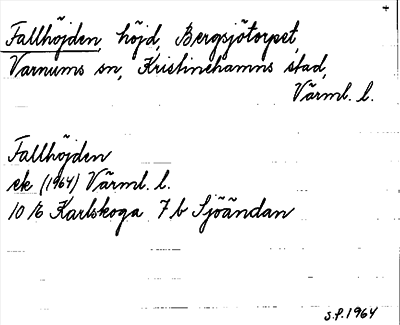 Fallhöjden, höjd, Bergsjötorpet,
Varnums sn, Kristinehamns stad,
Värml. l.
Fallhöjden
ek (1964) Värml. l.
10 16 Karlskoga 7 b Sjöändan
S.P. 1964